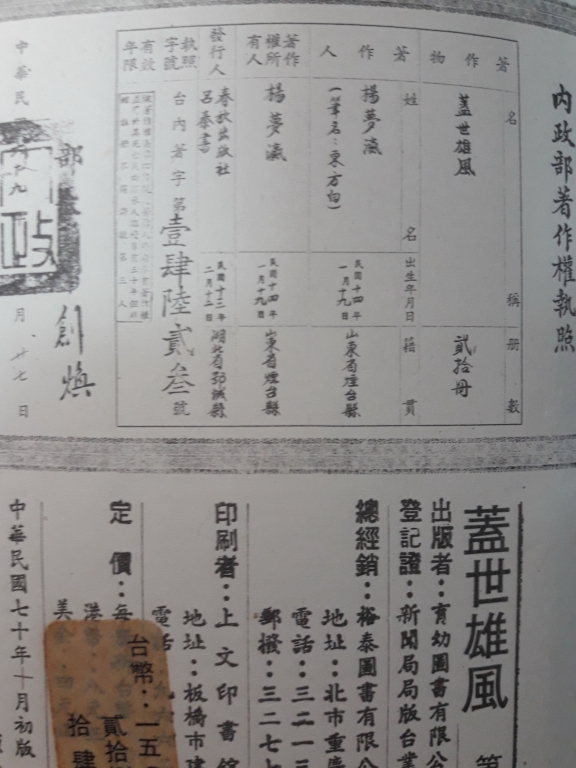 內政部著作權執照
著作物
名稱
蓋世雄風
冊數
貳拾冊
著作人
姓名
楊夢瀛
(筆名:東方白)
出生年月日
民國十四年一月十九日
籍貫
山東省煙台縣
著作權所有人
楊夢瀛
民國十四年一月十九日
山東省煙台縣
發行人
春秋出版社
呂秦書
民國十三年二月十三日
湖北省
執照字號
台內著字第壹肆陸貳叁號
有效年限
部
創煥
中華民
月廿七日
政
蓋世雄風 第
出版者:育幼圖書有限公
登記證:新聞局局版台業
總經銷:裕泰圖書有限公
地址:北市重慶
電話:三二一三
郵撥:三二七七
印刷者:上文印書館
地址:板橋市建
電話
定價:每
港幣:八元
美金:四元
台幣:一五
貳拾
拾肆
中華民國七十年十月初版